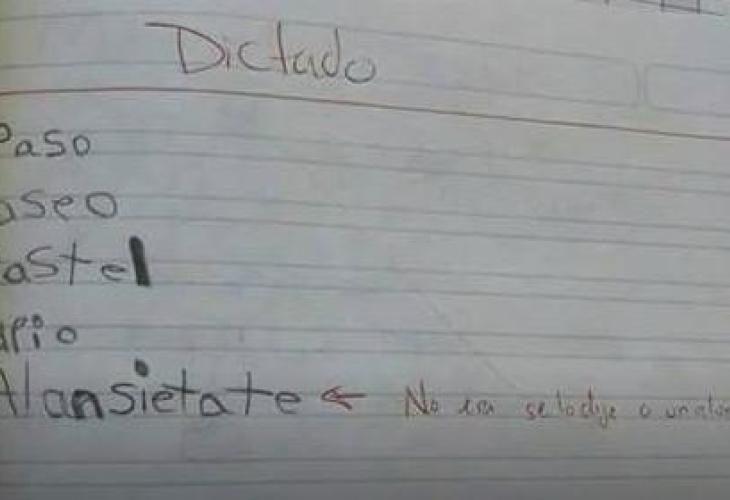 Dictado
Paso
aseo
astel
apio
Alansietate ← No era se lo dije a un alum